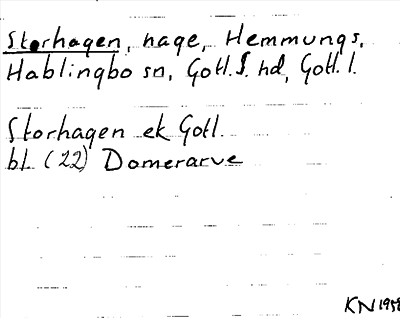 Storhagen, hage, Hemmungs,
Hablingbo sn, Gotl. S. hd, Gotl. l.
Storhagen ek Gotl.
bl. (22) Domerarve
KN 1958